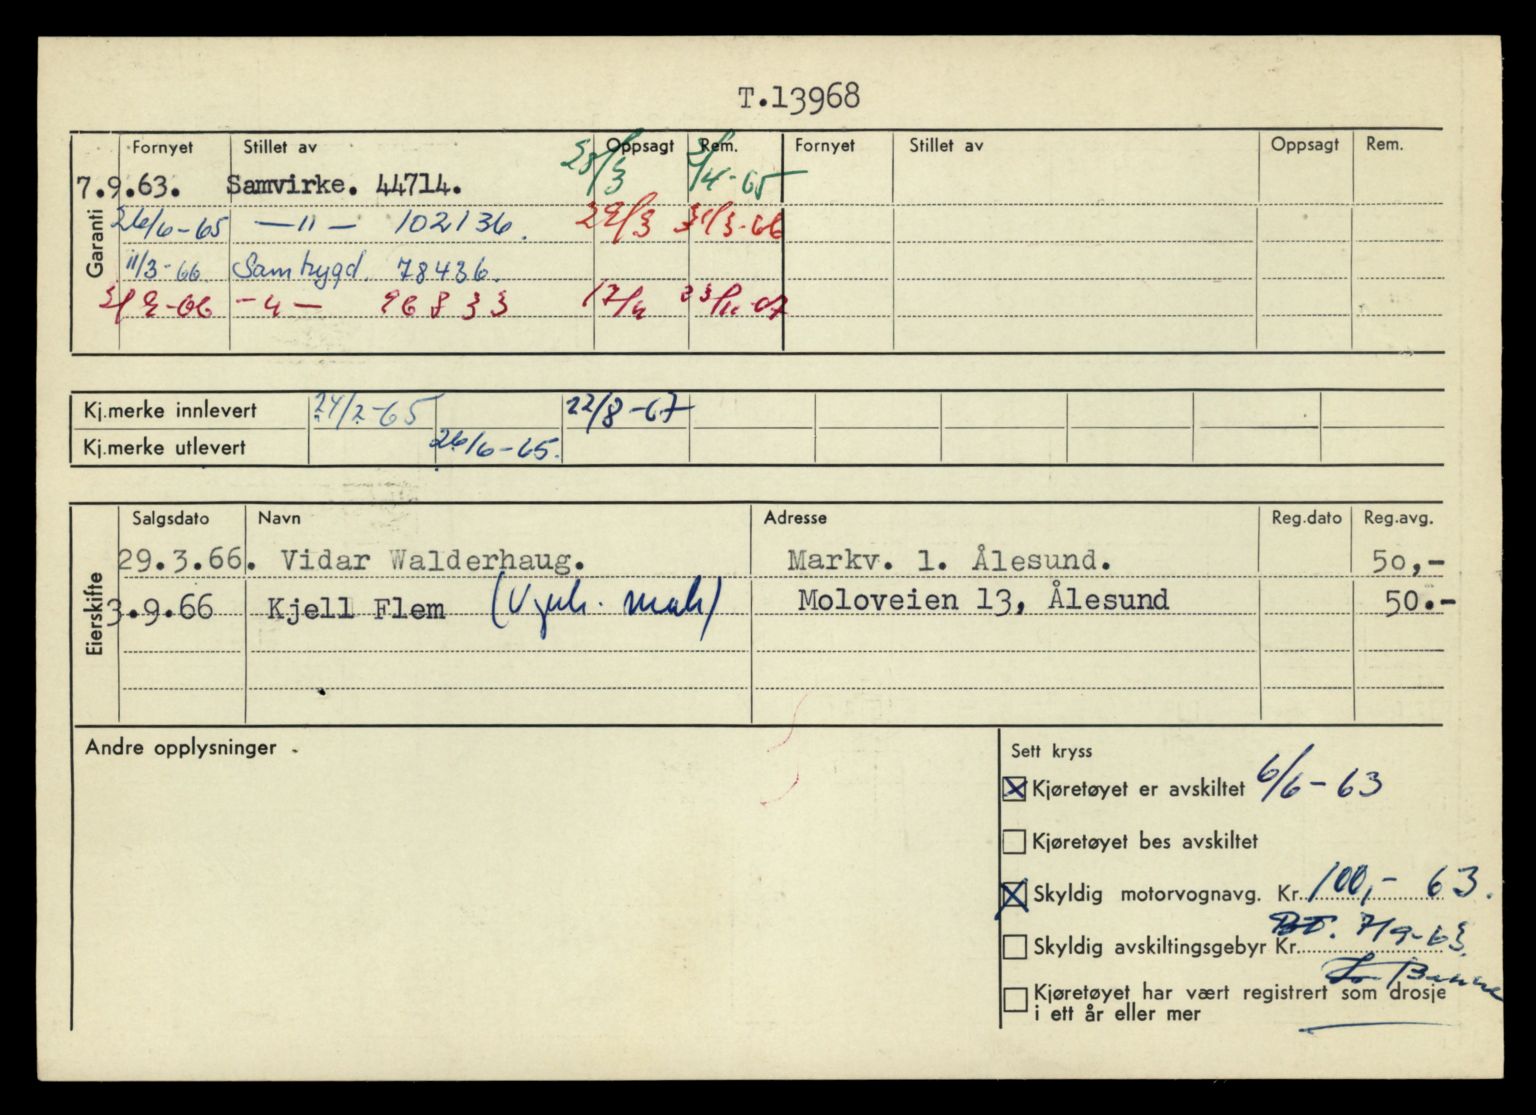 T.13968
Fornyet Stillet av Oppsagt Rem. Fornyet Stillet av Oppsagt Rem.
Garanti
7.9.63. Samvirke. 44714. 23/3 2/4-65
26/6-65 —"— 102136. 29/3 31/3-66
11/3-66 Samtrygd. 78436.
3/9-66 —"— 96833 17/4 23/11-67
Kj.merke innlevert 24/2-65 22/8-67
Kj.merke utlevert 26/6-65.
Eierskifte
Salgsdato Navn Adresse Reg.dato Reg.avg.
29.3.66. Vidar Walderhaug. Markv. 1. Ålesund. 50,-
3.9.66 Kjell Flem Moloveien 13, Ålesund 50.-
Andre opplysninger
Sett kryss
Kjøretøyet er avskiltet 6/6-63
Kjøretøyet bes avskiltet
Skyldig motorvognavg. Kr. 100,- 63.
BT. 7/9-63.
Skyldig avskiltingsgebyr Kr.
Kjøretøyet har vært registrert som drosje
i ett år eller mer